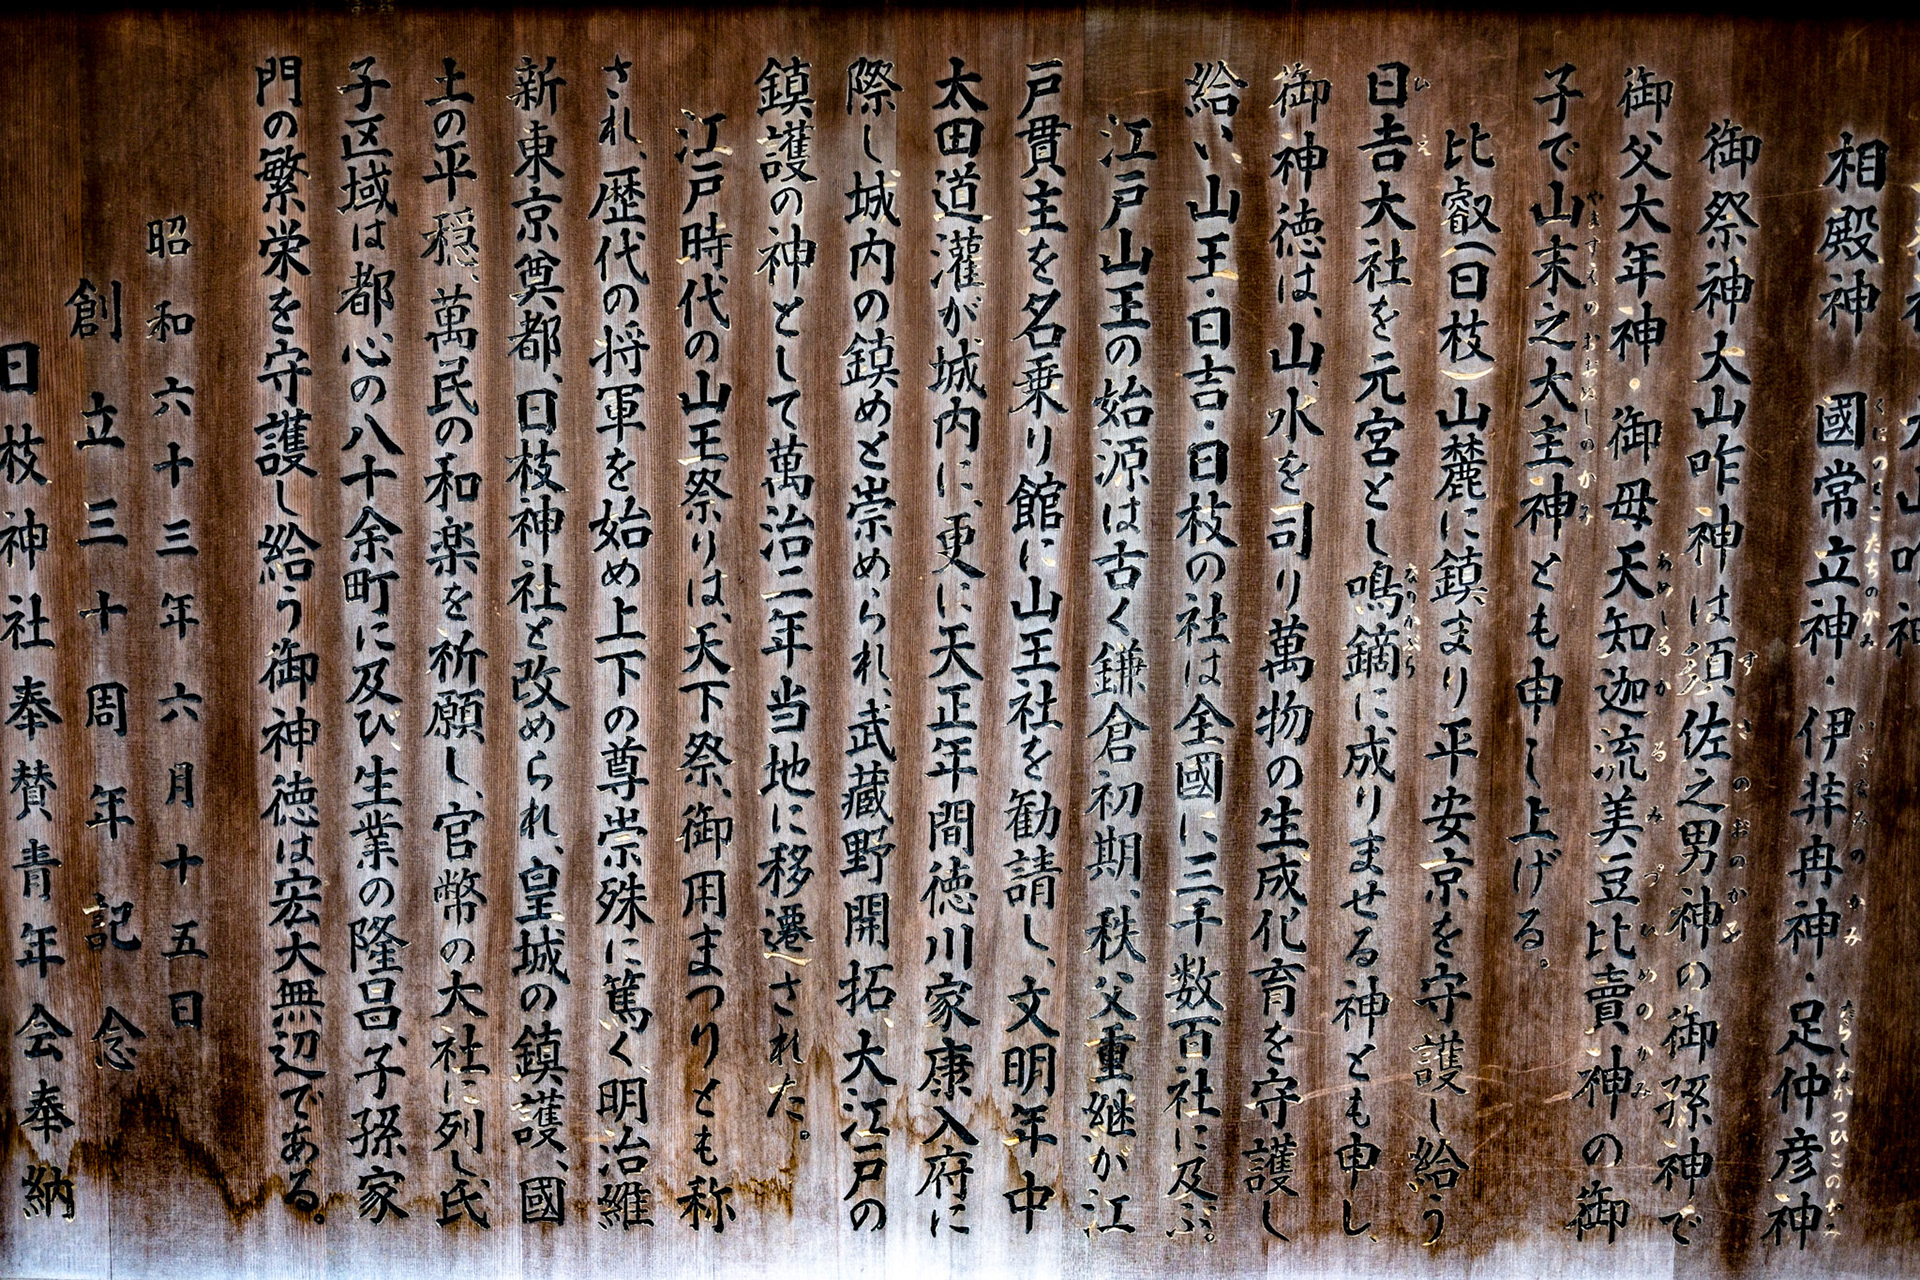 大山咋神
相殿神　國常立神・伊弉冉神・足仲彦神
御祭神大山咋神は須佐之男神の御孫神で
御父大年神・御母天知迦流美豆比賣神の御
子で山末之大主神とも申し上げる。
比叡(日枝)山麓に鎮まり平安京を守護し給う
日吉大社を元宮とし鳴鏑に成りませる神とも申し、
御神徳は、山、水を司り萬物の生成化育を守護し
給い、山王・日吉・日枝の社は全國に三千数百社に及ぶ。
江戸山王の始源は古く鎌倉初期、秩父重継が江
戸貫主を名乗り館に山王社を勧請し、文明年中
太田道灌が城内に、更に天正年間徳川家康入府に
際し城内の鎮めと崇められ、武蔵野開拓、大江戸の
鎮護の神として萬治二年当地に移遷された。
江戸時代の山王祭りは、天下祭、御用まつりとも称
され、歴代の将軍を始め上下の尊崇殊に篤く、明治維
新東京奠都、日枝神社と改められ、皇城の鎮護、國
土の平穏、萬民の和楽を祈願し、官幣の大社に列し、氏
子区域は都心の八十余町に及び生業の隆昌、子孫家
門の繁栄を守護し給う御神徳は宏大無辺である。
昭和六十三年六月十五日
創立三十周年記念
日枝神社奉賛青年会奉納